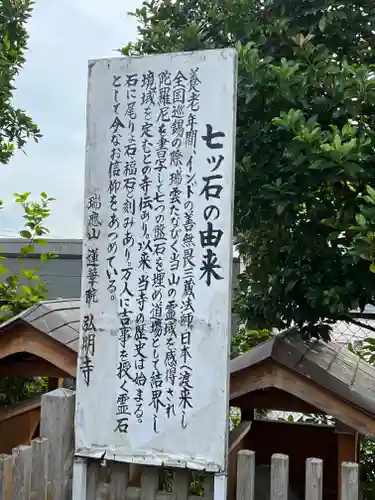 七ッ石の由来
養老年間、インドの善無畏三蔵法師、日本へ渡来し
全国巡錫の際、瑞雲たなびく当山の霊域を感得され
陀羅尼を書写して七つの盤石を埋め道場として結界し
境域を定むとの寺伝あり。以来、当寺の歴史は始まる。
石に尾り、石・福石の刻みあり。万人に吉事を授く霊石
として今なお信仰をあつめている。
瑞應山 蓮華院 弘明寺